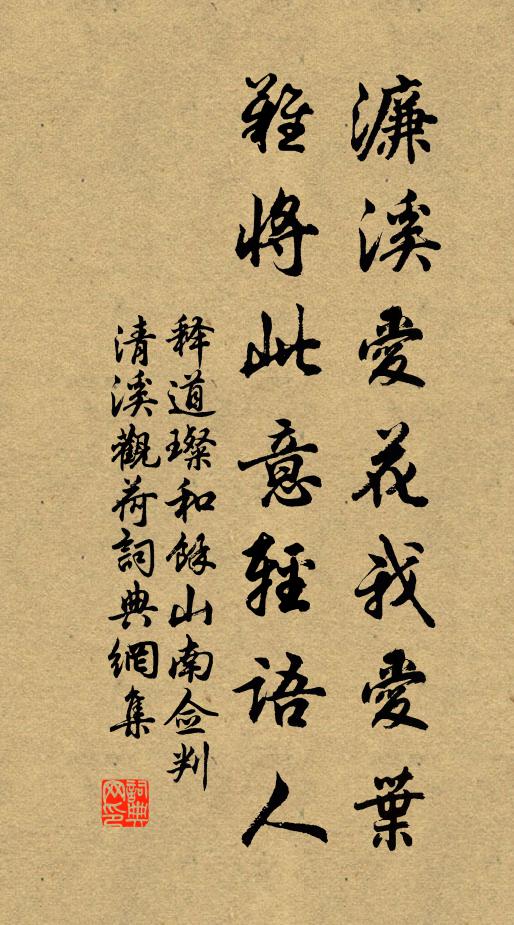 濂溪愛花我愛葉
難將此意輕語人
释道璨和餘山南佥判
清溪觀荷詞典網集
詞典网印